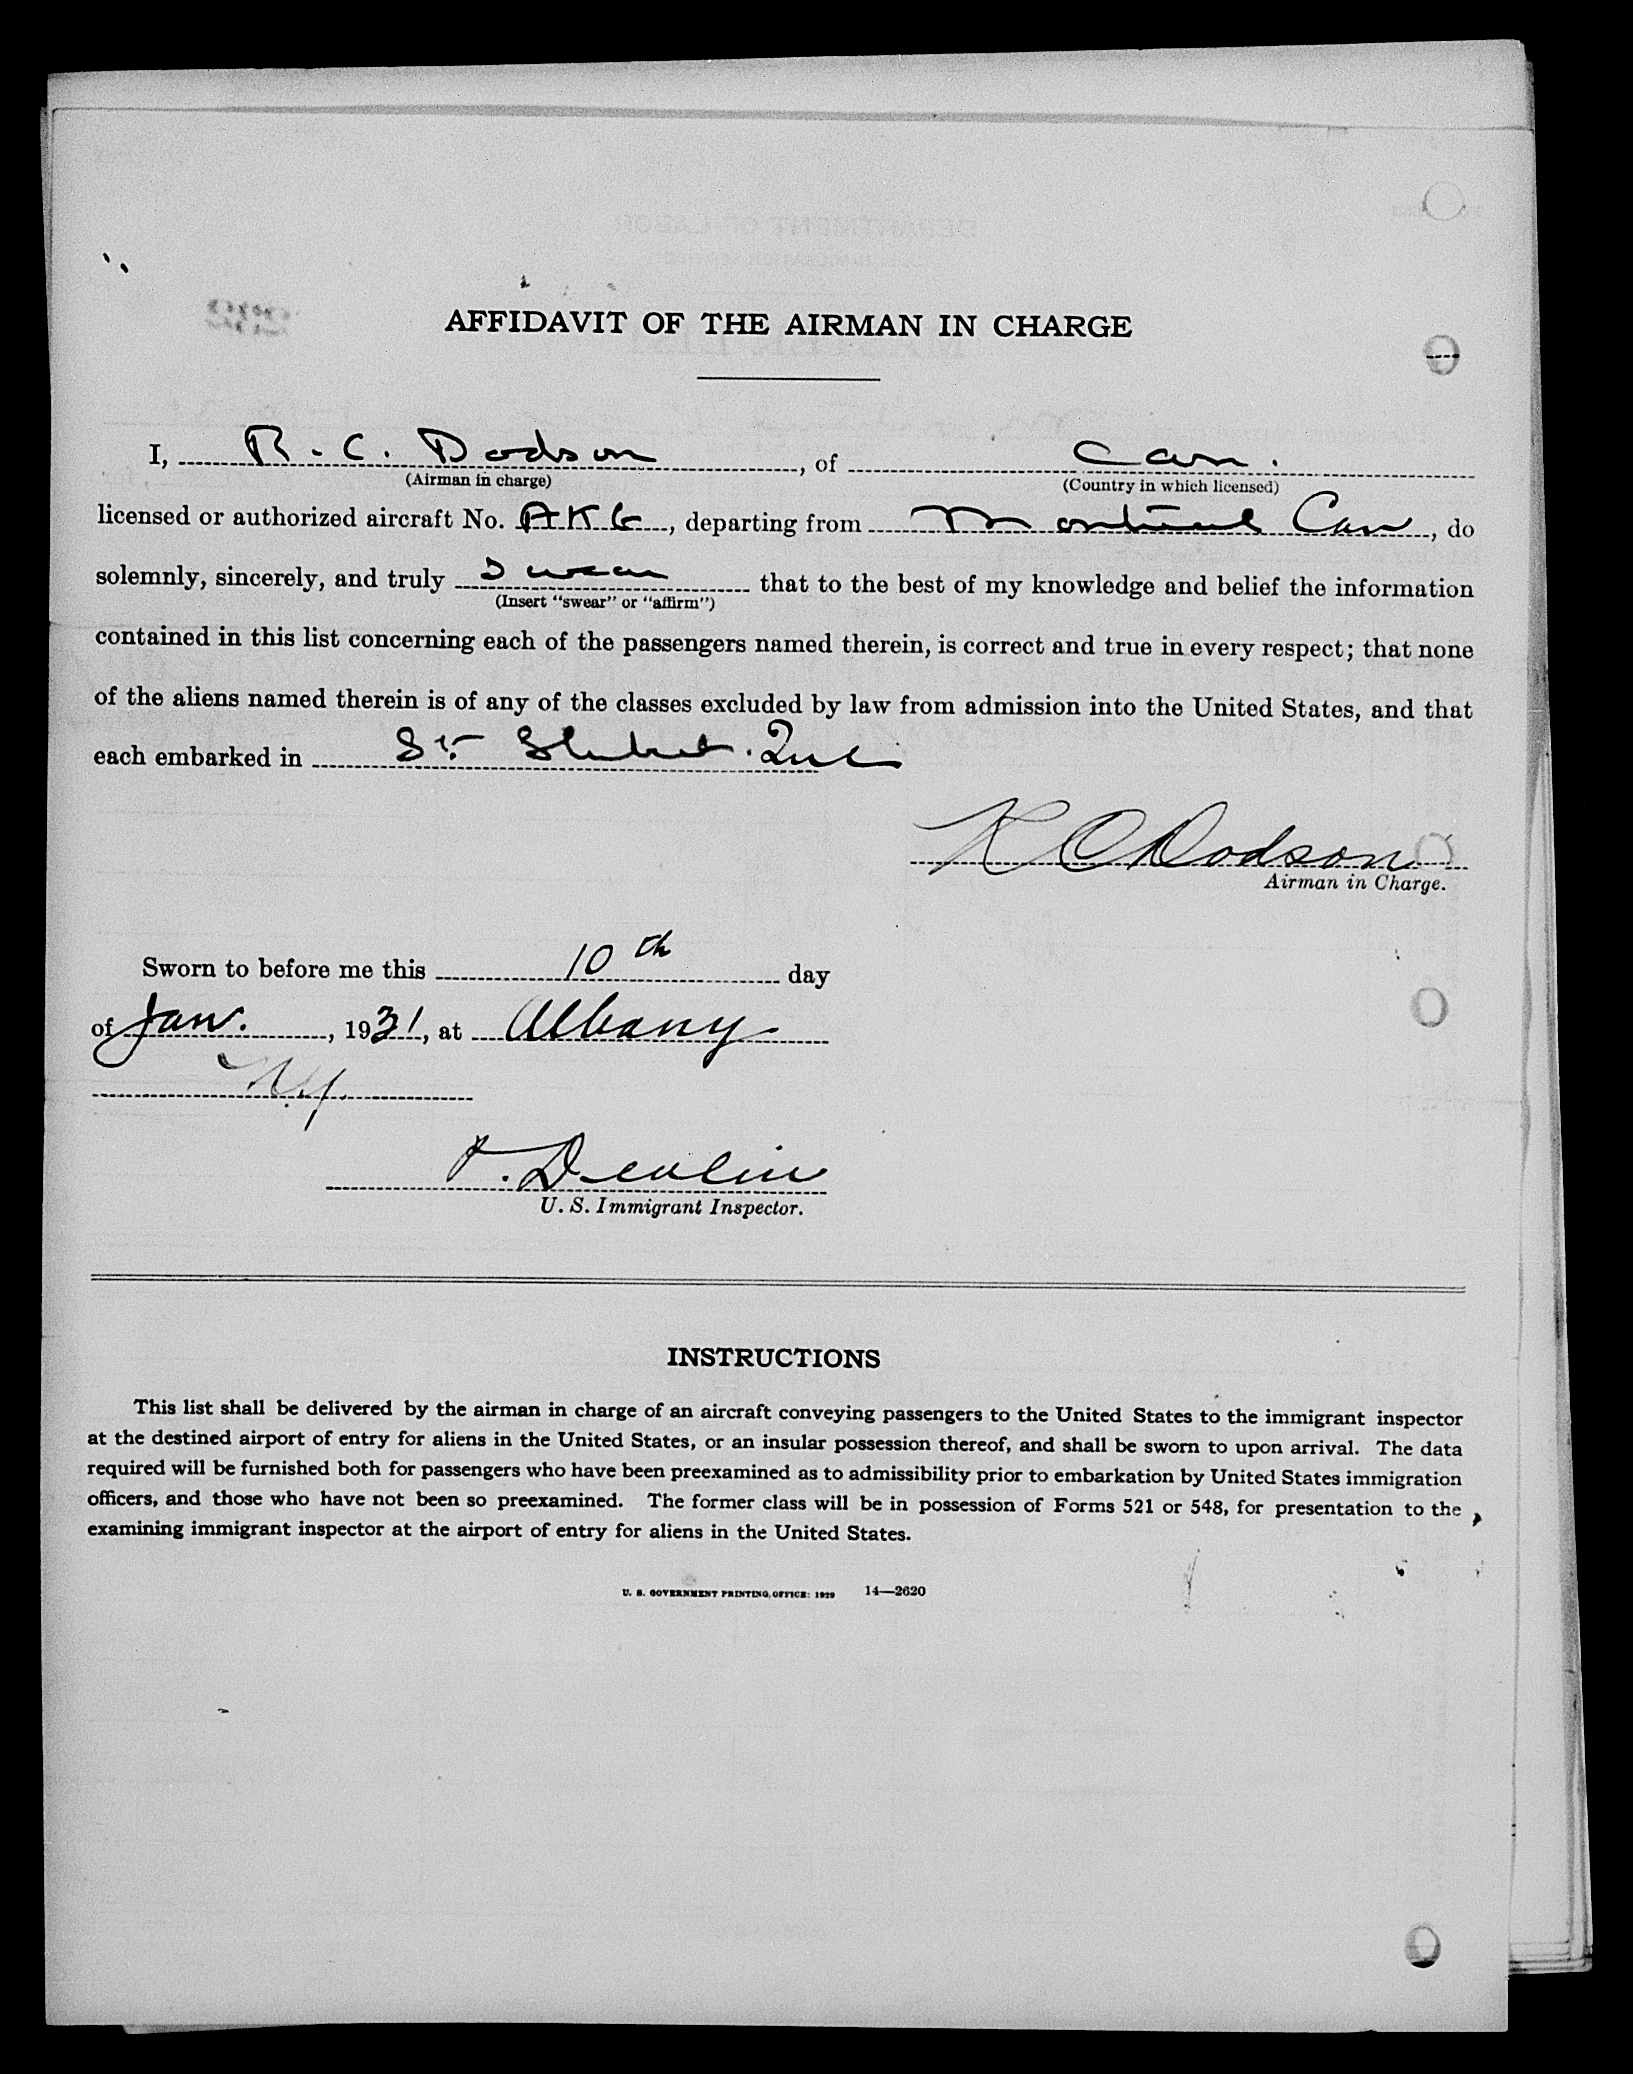 AFFIDAVIT OF THE AIRMAN IN CHARGE
I, R. C. Dodson, of Can.
(Airman in charge) (Country in which licensed)
licensed or authorized aircraft No. AKG, departing from Montreal Can, do
solemnly, sincerely, and truly swear that to the best of my knowledge and belief the information
(Insert "swear" or "affirm")
contained in this list concerning each of the passengers named therein, is correct and true in every respect; that none
of the aliens named therein is of any of the classes excluded by law from admission into the United States, and that
each embarked in St. Hubert. Que
R C Dodson
Airman in Charge.
Sworn to before me this 10th day
of Jan., 1931, at Albany
N.Y.
Devlin
U. S. Immigrant Inspector.
INSTRUCTIONS
This list shall be delivered by the airman in charge of an aircraft conveying passengers to the United States to the immigrant inspector
at the destined airport of entry for aliens in the United States, or an insular possession thereof, and shall be sworn to upon arrival. The data
required will be furnished both for passengers who have been preexamined as to admissibility prior to embarkation by United States immigration
officers, and those who have not been so preexamined. The former class will be in possession of Forms 521 or 548, for presentation to the
examining immigrant inspector at the airport of entry for aliens in the United States.
U. S. GOVERNMENT PRINTING OFFICE: 1929 14—2620